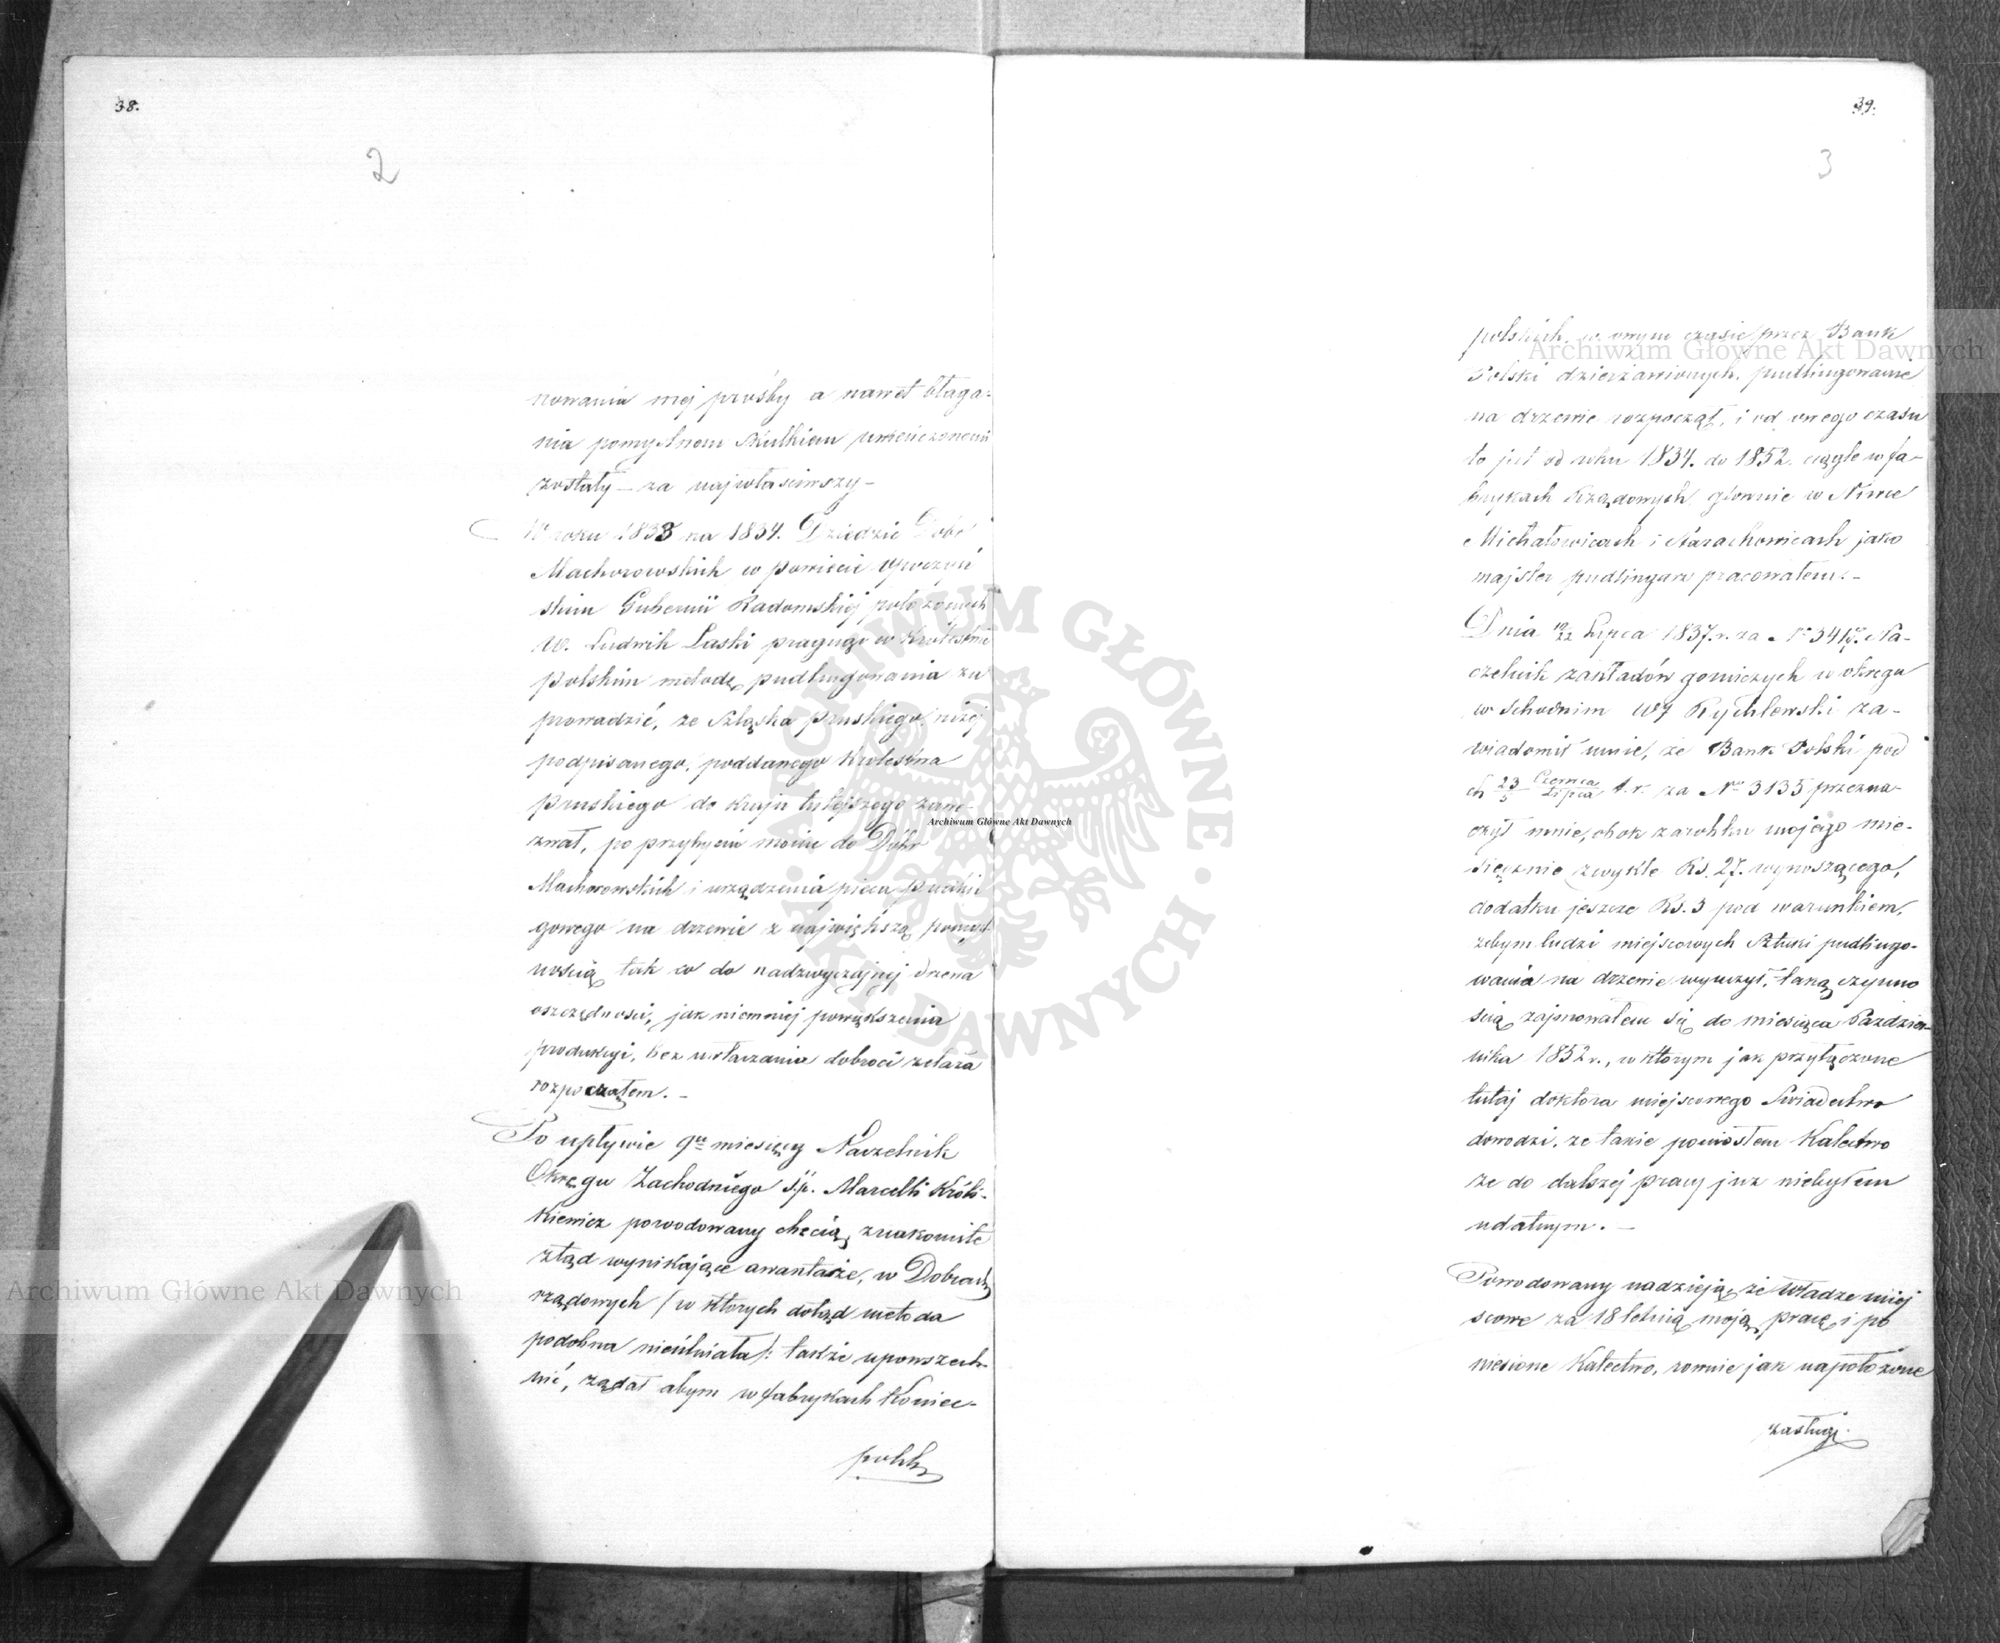 38.
2
nowania mej prośby a nawet błaga-
nia pomyślnem skutkiem uwieńczonemi
zostały — za najwłaściwszy —
W roku 1833 na 1834. Dziedzic Dóbr
Machorowskich w powiecie Opoczyń
skim Gubernii Radomskiej położonych
W. Ludwik Łaski pragnąc w Królestwie
polskim metodę pudlingowania za
prowadzić, ze Szląska pruskiego niżej
podpisanego, poddanego Królestwa
pruskiego do kraju tutejszego zawe-
zwał, po przybyciu moim do Dóbr
Machorowskich i urządzenia pieca pudlin
gowego na drzewie z największą pomyśl
nością tak co do nadzwyczajnej drzewa
oszczędności, jak niemniej powiększenia
produkcyi, bez uwłaczania dobroci żelaza
rozpocząłem. —
Po upływie 9ciu miesięcy Naczelnik
Okręgu Zachodniego ś.p. Marcelli Króli-
kiewicz powodowany chęcią, znakomite
ztąd wynikające awantaże, w Dobrach
rządowych /w których dotąd metoda
podobna nieistniała/: także upowszech-
nić, żądał abym w fabrykach Koniec-
polskich
39.
3
polskich, w owym czasie przez Bank
Polski dzierżawionych, pudlingowanie
na drzewie rozpoczął, i od owego czasu
to jest od roku 1834. do 1852. ciągle w fa-
brykach Rządowych głownie w Niwce
Michałowicach i Starachowicach jako
majster pudlingarz pracowałem. —
Dnia 10/22 Lipca 1837. r. za No 3417. Na-
czelnik zakładów górniczych w okręgu
w Schodnim WJ Rychłowski za-
wiadomił mnie, że Bank Polski pod
d. 23 Czerwca / 5 Lipca t. r. za No 3135 przezna-
czył mnie, obok zarobku mojego mie-
sięcznie zwykle Rs. 27. wynoszącego,
dodatku jeszcze Rs. 3 pod warunkiem,
żebym ludzi miejscowych sztuki pudlingo-
wania na drzewie wyuczył, taką czynno
ścią zajmowałem się do miesiąca Paździer-
nika 1852 r., w którym jak przyłączone
tutaj doktora miejscowego Świadectwo
dowodzi, że takie poniosłem Kalectwo
że do dalszej pracy już niebyłem
udatnym. —
Powodowany nadzieją, że Władze miej
scowe za 18 letnią moją, pracę i po
niesione Kalectwo, rownie jak na położone
zasługi.
Archiwum Główne Akt Dawnych
Archiwum Główne Akt Dawnych
Archiwum Główne Akt Dawnych
ARCHIWUM GŁÓWNE AKT DAWNYCH